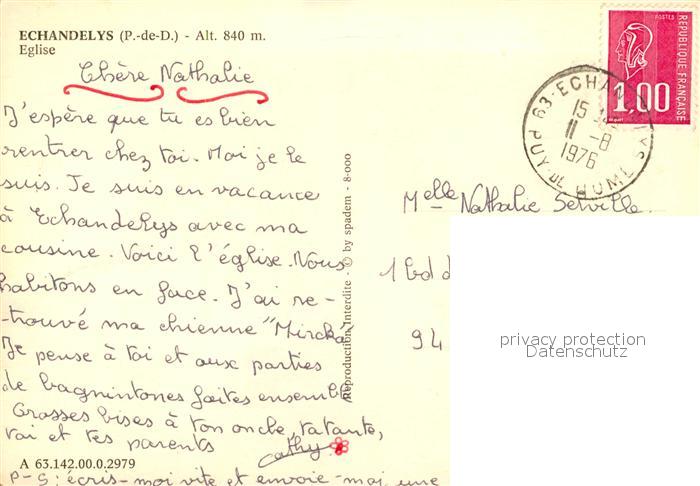 ECHANDELYS (P.-de-D.) - Alt. 840 m.
Eglise
Chère Nathalie
J'espère que tu es bien
rentrer chez toi. Moi je le
suis. Je suis en vacance
à Echandelys avec ma
cousine. Voici l'église. Nous
habitons en face. J'ai re-
-trouvé ma chienne "Mircka"
Je pense à toi et aux parties
de bagnintones faites ensemble
Grosses bises à ton oncle, ta tante,
toi et tes parents
Cathy
A 63.142.00.0.2979
P-S: écris-moi vite et envoie-moi une
Reproduction Interdite - © by spadem - 8-000
POSTES
REPUBLIQUE FRANÇAISE
1,00
63-ECHANDELYS
15
11-8
1976
PUY DE DOME
Melle Nathalie Setville
1 bd d
94
privacy protection
Datenschutz